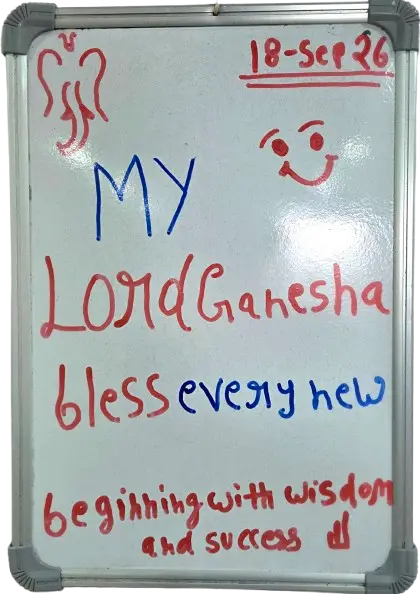 18-Sep 26
MY
Lord Ganesha
bless every new
beginning with wisdom
and success